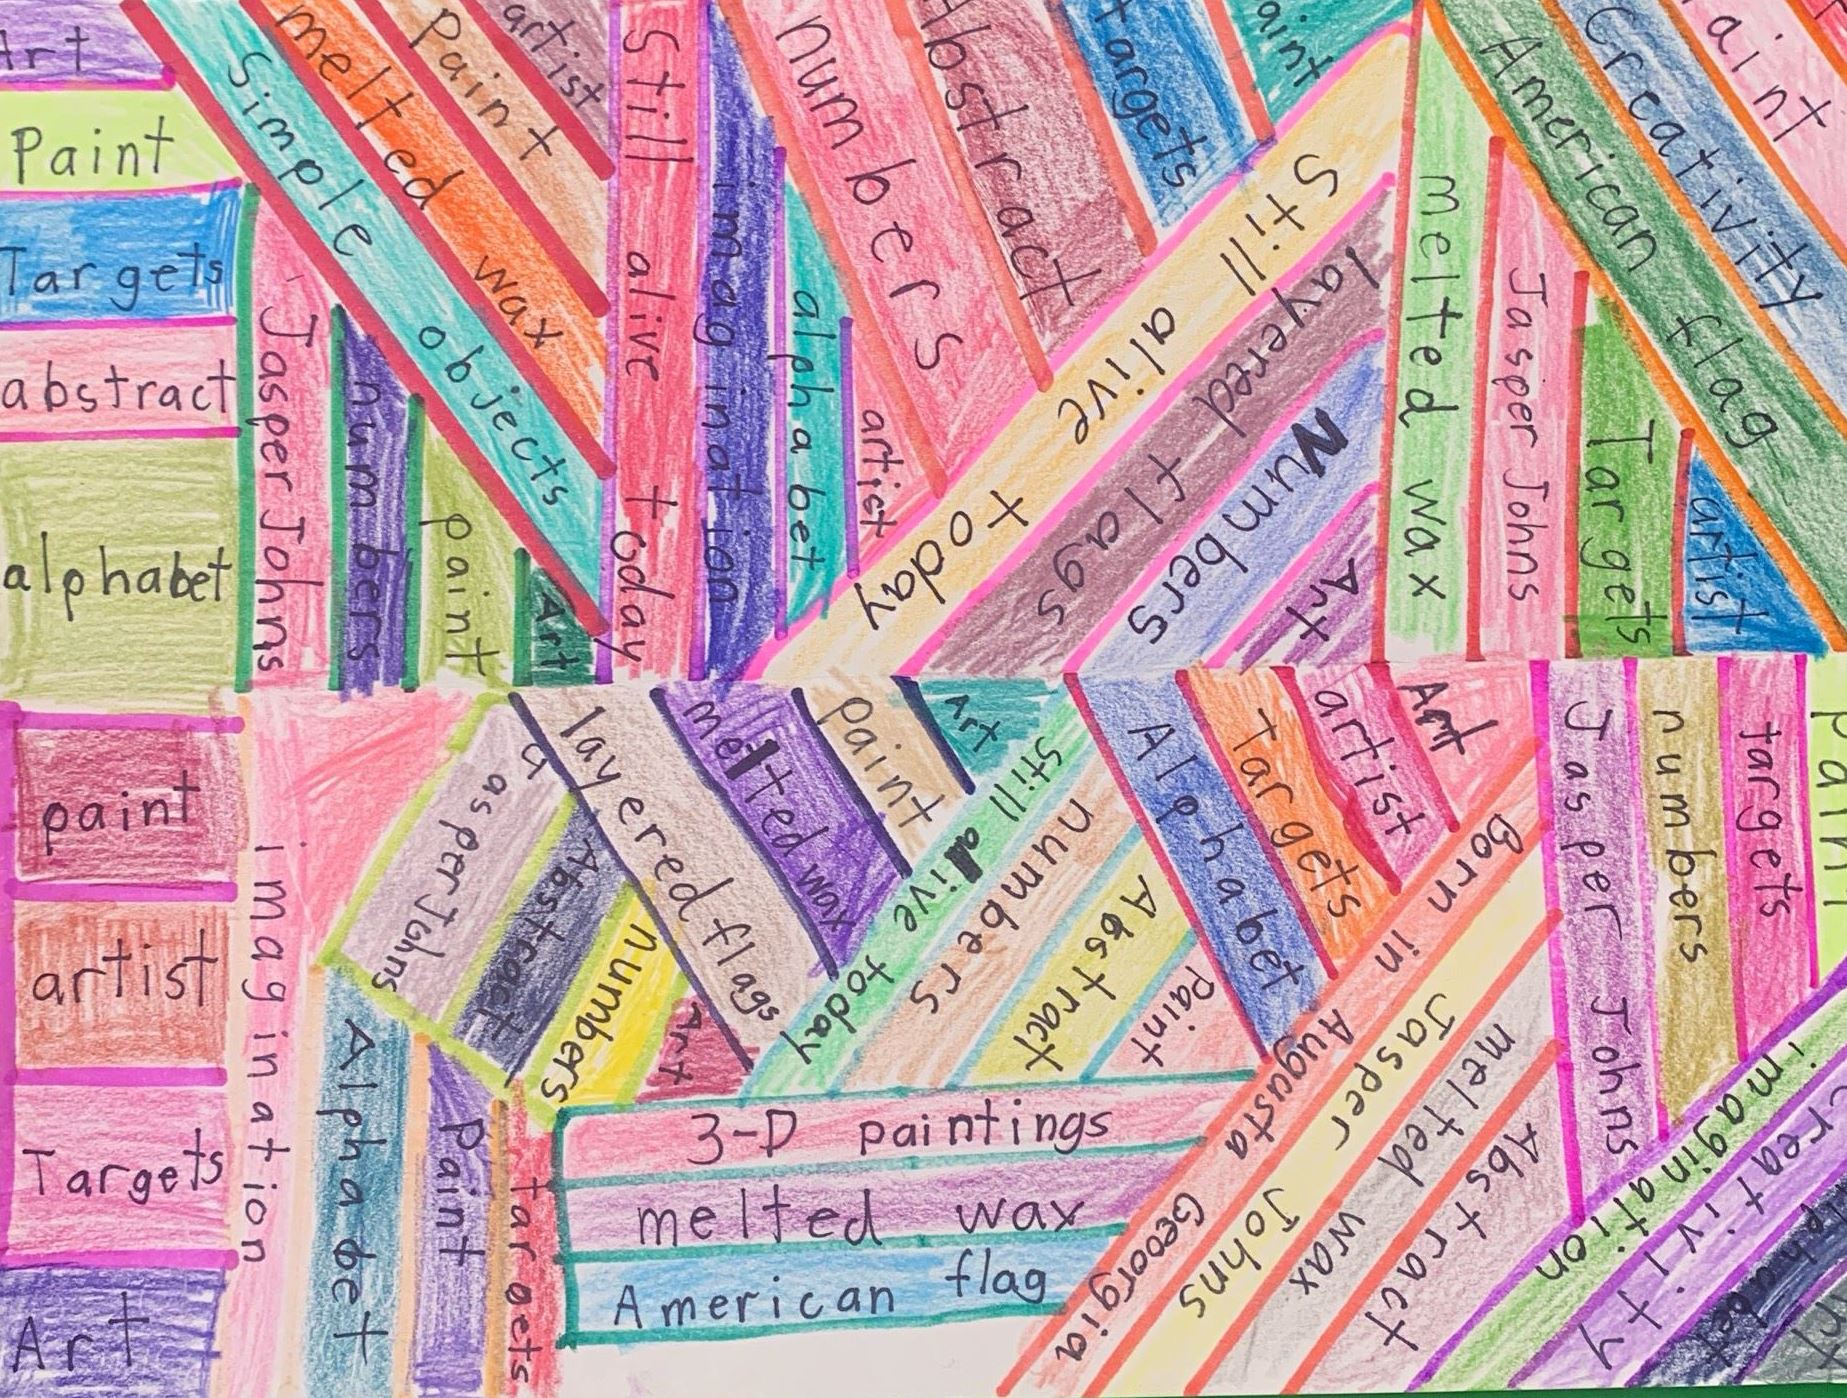 Art
Paint
Targets
abstract
alphabet
Simple objects
melted wax
Paint
artist
Jasper Johns
numbers
paint
Art
Still alive today
imagination
alphabet
artist
numbers
Abstract
targets
Paint
Still alive today
layered flags
Numbers
Art
melted wax
Jasper Johns
Targets
artist
American flag
Creativity
Paint
paint
artist
Targets
Art
imagination
Alphabet
Paint
Targets
Jasper Johns
Abstract
numbers
Art
layered flags
melted wax
paint
Art
Still alive today
numbers
Abstract
Paint
Alphabet
Targets
artist
Art
3-D paintings
melted wax
American flag
Born in Augusta Geoorgia
Jasper Johns
melted wax
Abstract
Jasper Johns
numbers
Targets
Paint
imagination
Creativity
Alphabet
Art